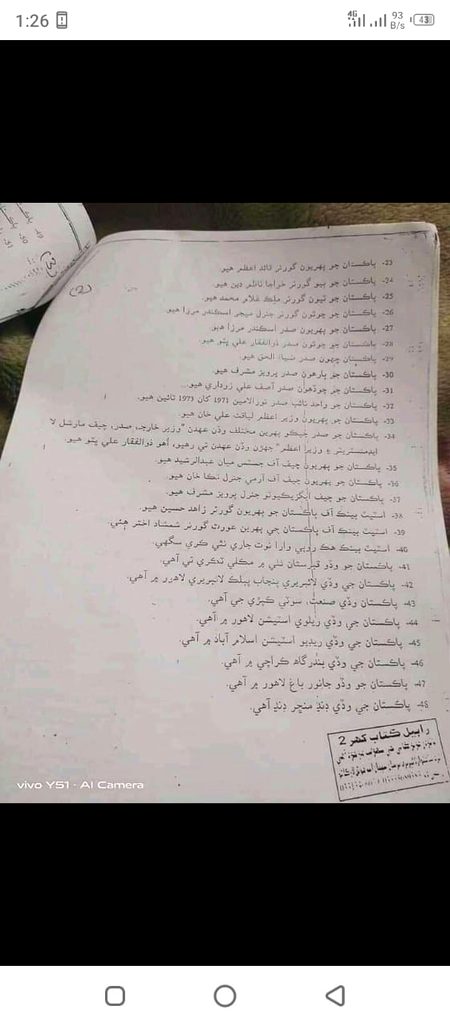 1:26
4G
93 B/s
43
(2)
23- پاڪستان جو پهريون گورنر قائد اعظم هيو.
24- پاڪستان جو ٻيو گورنر خواجا ناظم دين هيو.
25- پاڪستان جو ٽيون گورنر ملڪ غلام محمد هيو.
26- پاڪستان جو چوٿون گورنر جنرل ميجر اسڪندر مرزا هيو.
27- پاڪستان جو پهريون صدر اسڪندر مرزا هيو.
28- پاڪستان جو چوٿون صدر ذوالفقار علي ڀٽو هيو.
29- پاڪستان ڇهون صدر ضياء الحق هيو.
30- پاڪستان جو ٻارهون صدر پرويز مشرف هيو.
31- پاڪستان جو چوڏهون صدر آصف علي زرداري هيو.
32- پاڪستان جو واحد نائب صدر نورالامين 1971 کان 1973 تائين هيو.
33- پاڪستان جو پهريون وزير اعظم لياقت علي خان هيو.
34- پاڪستان جو صدر جيڪو پهرين مختلف وڏن عهدن "وزير خارجه، صدر، چيف مارشل لا
ايڊمنسٽريٽر ۽ وزير اعظم" جهڙن وڏن عهدن تي رهيو، اهو ذوالفقار علي ڀٽو هيو.
35- پاڪستان جو پهريون چيف آف جسٽس ميان عبدالرشيد هيو.
36- پاڪستان جو پهريون چيف آف آرمي جنرل ٽڪا خان هيو.
37- پاڪستان جو چيف ايگزيڪيوٽو جنرل پرويز مشرف هيو.
38- اسٽيٽ بينڪ آف پاڪستان جو پهريون گورنر زاهد حسين هيو.
39- اسٽيٽ بينڪ آف پاڪستان جي پهرين عورت گورنر شمشاد اختر هئي.
40- اسٽيٽ بينڪ هڪ روپي وارا نوٽ جاري نٿي ڪري سگهي.
41- پاڪستان جو وڏو قبرستان ٺٽي ۾ مڪلي ٽڪري تي آهي.
42- پاڪستان جي وڏي لائبريري پنجاب پبلڪ لائبريري لاهور ۾ آهي.
43- پاڪستان وڏي صنعت، سوٽي ڪپڙي جي آهي.
44- پاڪستان جي وڏي ريلوي اسٽيشن لاهور ۾ آهي.
45- پاڪستان جي وڏي ريڊيو اسٽيشن اسلام آباد ۾ آهي.
46- پاڪستان جي وڏي بندرگاھ ڪراچي ۾ آهي.
47- پاڪستان جو وڏو جانور باغ لاهور ۾ آهي.
48- پاڪستان جي وڏي ڍنڍ منڇر ڍنڍ آهي.
رابيل ڪتاب گهر 2
vivo Y51 · AI Camera